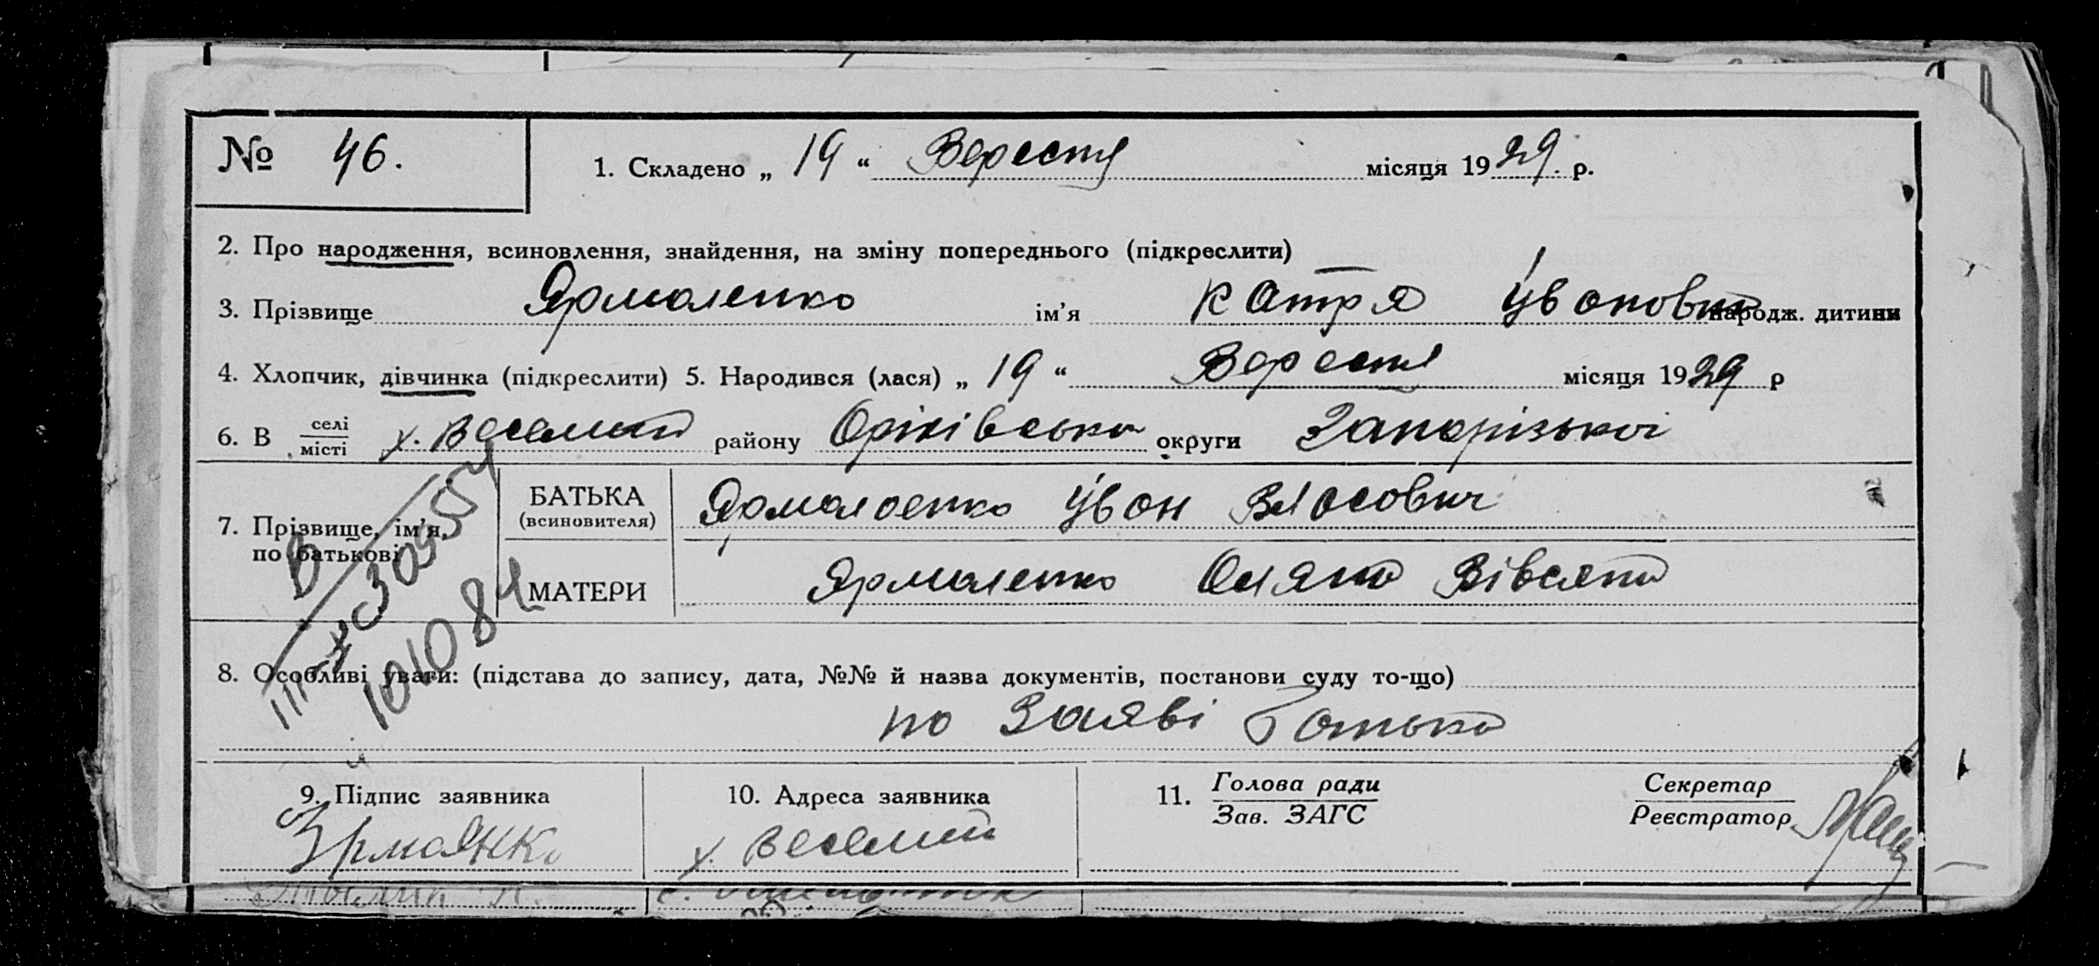 № 46.
1. Складено „ 19 “ Вересня місяця 1929. р.
2. Про народження, всиновлення, знайдення, на зміну попереднього (підкреслити)
3. Прізвище Ярмоленко ім'я Катря Ивановна народж. дитини
4. Хлопчик, дівчинка (підкреслити) 5. Народився (лася) „ 19 “ Вересня місяця 1929 р
6. В селі місті х. Веселий району Оріхівського округи Запорізької
7. Прізвище, ім'я, по батькові
БАТЬКА (всиновителя) Ярмолоенко Иван Власович
МАТЕРИ Ярмоленко
101084
8. Особливі уваги: (підстава до запису, дата, №№ й назва документів, постанови суду то-що)
по Заяві Батька
9. Підпис заявника
10. Адреса заявника
х. Веселий
11. Голова ради Зав. ЗАГС
Секретар Реєстратор